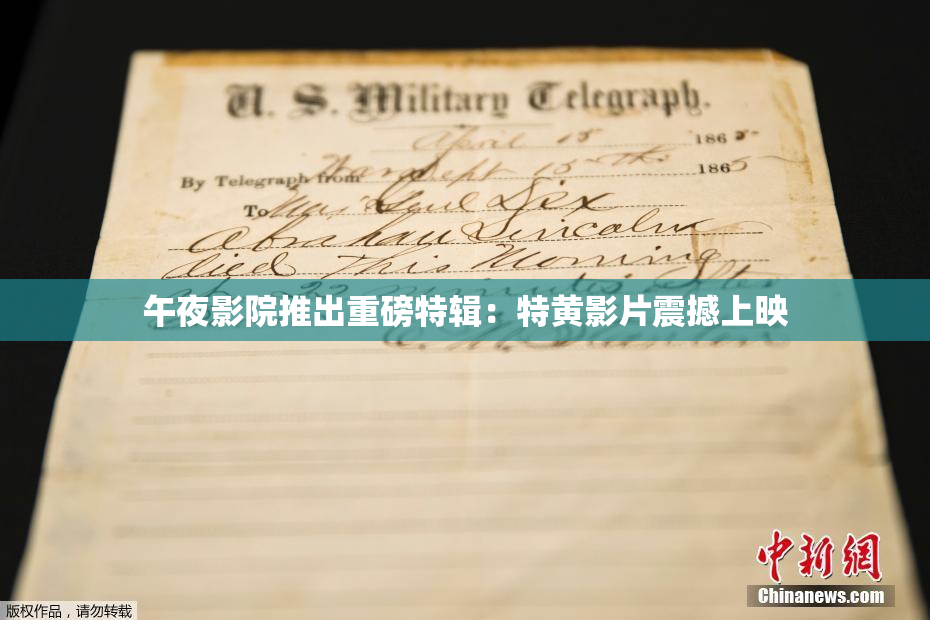 U. S. Military Telegraph.
April 15 1865.
By Telegraph from War Dept 15th 1865
To Maj Genl Dix
Abraham Lincoln
died This Morning
at 22 minutes after
午夜影院推出重磅特辑：特黄影片震撼上映
E. M. Stanton
中新网
Chinanews.com
版权作品，请勿转载